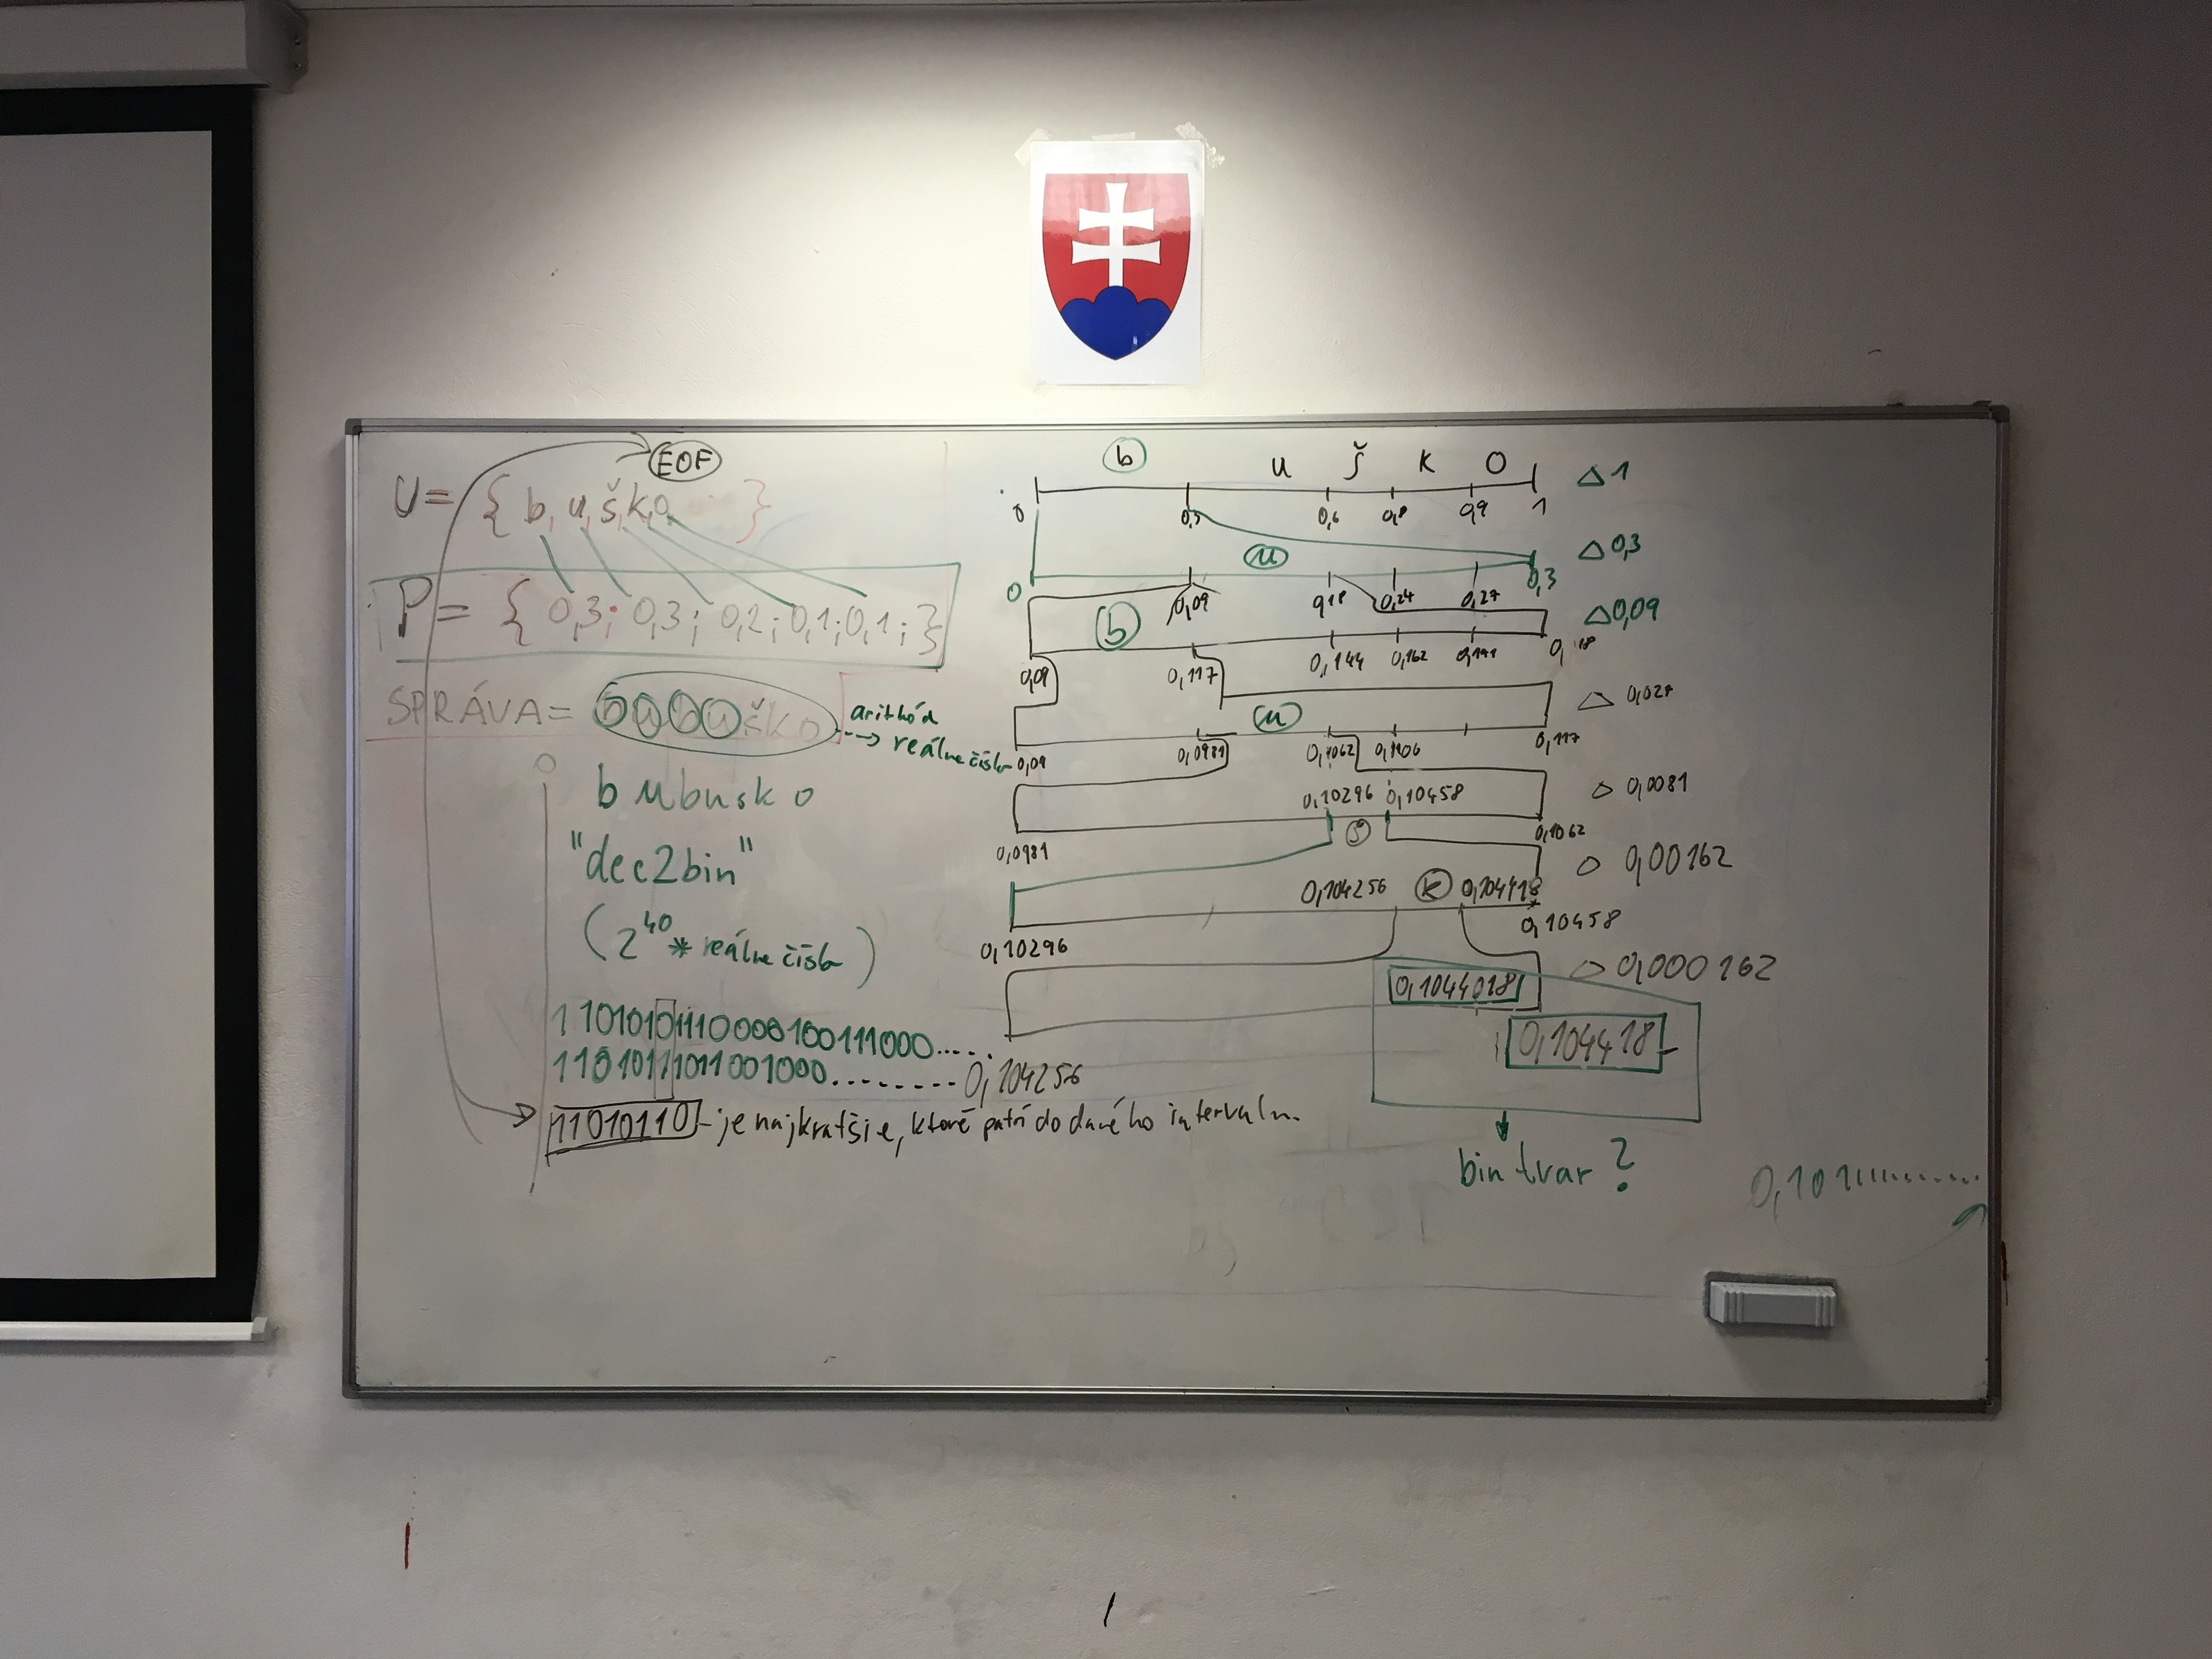 EOF
U= { b, u, š, k, o }
P = { 0,3; 0,3; 0,2; 0,1; 0,1; }
SPRÁVA= bubuško
aritkód
reálne číslo
bubusko
"dec2bin"
(2^40 * reálne číslo)
110101011100001001111000.....
11010111011001000........ 0,104256
11010110 - je najkratšie, ktoré patrí do daného intervalu.
b u š k o Δ1
0 0,3 0,6 0,8 0,9 1
u Δ0,3
0 0,09 0,18 0,24 0,27 0,3
b Δ0,09
0,09 0,117 0,144 0,162 0,171 0,18
u Δ0,027
0,09 0,0981 0,1062 0,1106 0,117
0,10296 0,10458 Δ 0,0081
0,0981 š 0,1062
Δ 0,00162
0,104256 k 0,104418
0,10296 0,10458
Δ 0,000162
0,1044018
0,104418
bin tvar ?
0,101